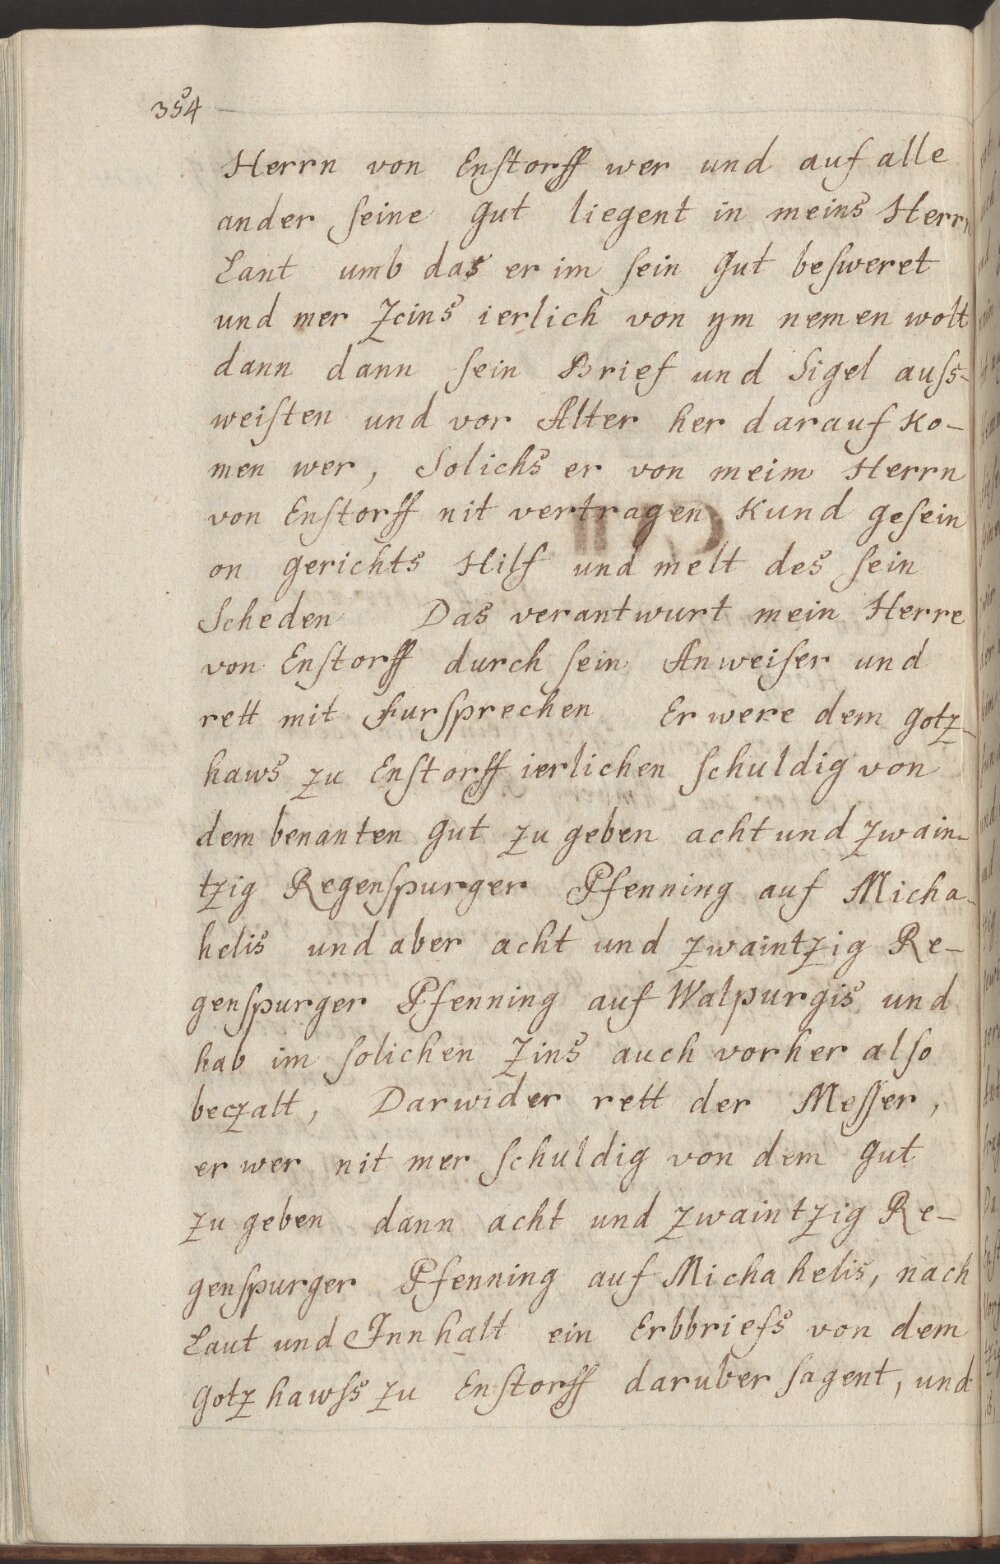 354
Herrn von Enstorff wer und auf alle
ander seine gut liegent in meins Herrn
Lant umb das er im sein gut besweret
und mer Zcins ierlich von ym nemen wolt
dann dann sein Brief und Sigel auss-
weisten und vor Alter her darauf Ko-
men wer, Solichs er von meim Herrn
von Enstorff nit vertragen Kund gesein
on gerichts Hilf und melt des sein
Scheden Das verantwurt mein Herre
von Enstorff durch sein Anweiser und
rett mit Fursprechen Er were dem gotz-
haws zu Enstorff ierlichen schuldig von
dem benanten gut zu geben acht und zwain-
tzig Regenspurger Pfenning auf Micha-
helis und aber acht und zwaintzig Re-
genspurger Pfenning auf Walpurgis und
hab im solichen Zins auch vorher also
beczalt, Darwider rett der Messer,
er wer nit mer schuldig von dem gut
zu geben dann acht und zwaintzig Re-
genspurger Pfenning auf Michahelis, nach
Laut und Innhalt ein Erbbriefs von dem
Gotzhawss zu Enstorff daruber sagent, und